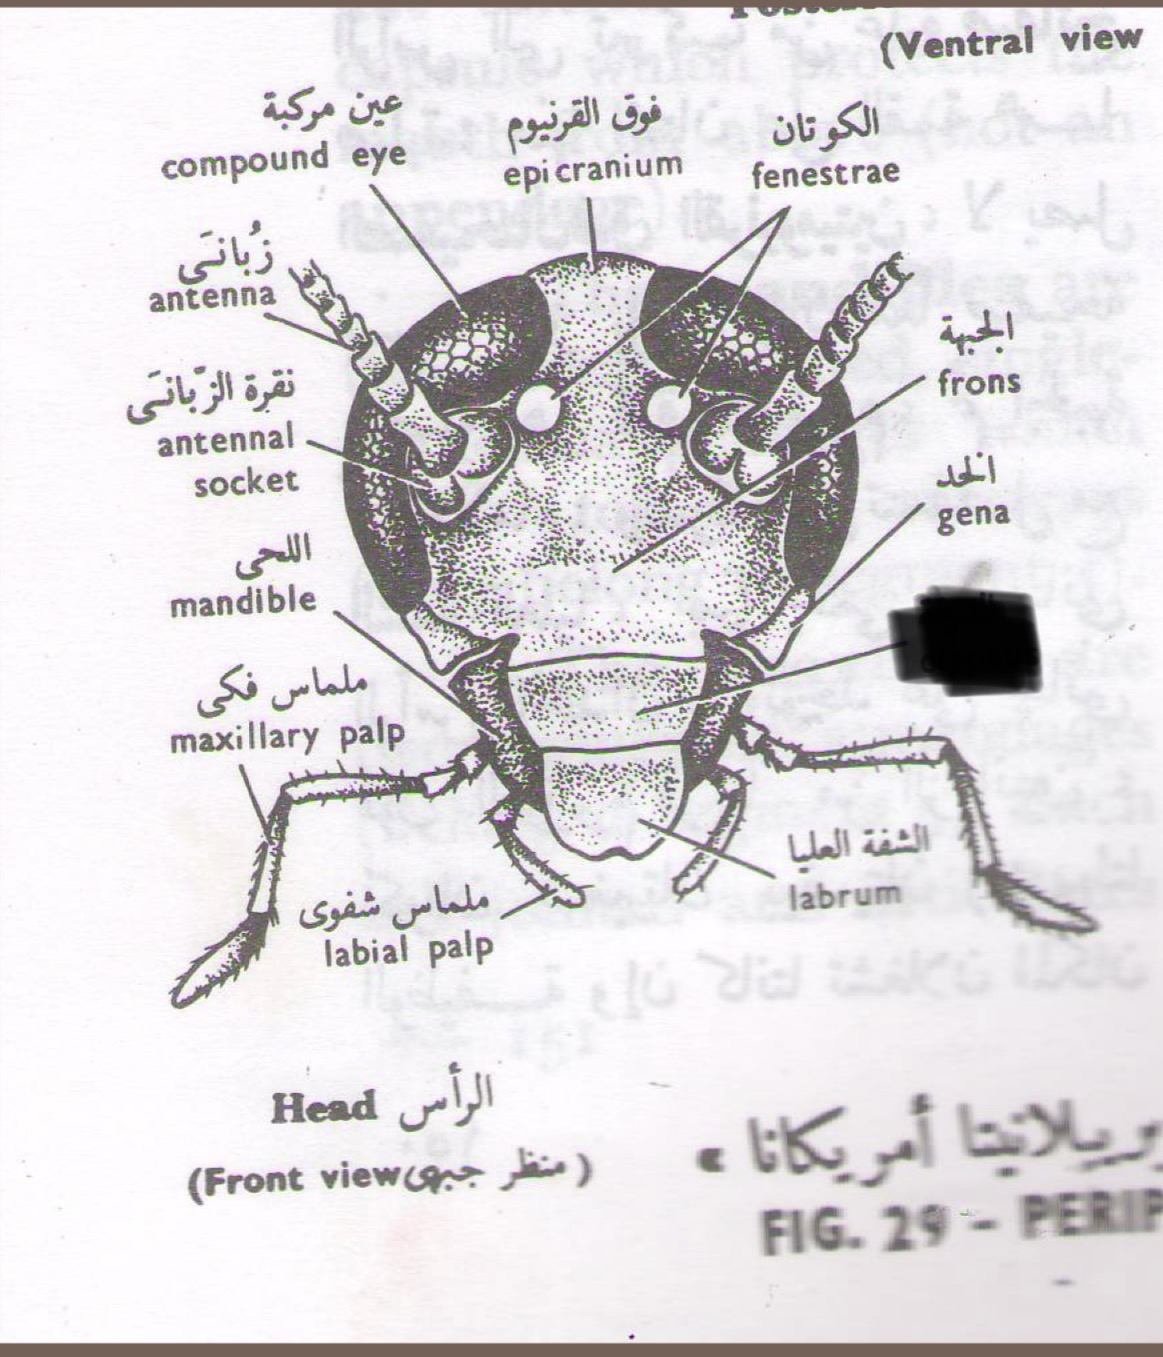 (Ventral view
عين مركبة
compound eye
فوق القرنيوم
epicranium
الكوتان
fenestrae
زُبانَى
antenna
الجبهة
frons
نقرة الزّبانَى
antennal
socket
الخد
gena
اللحى
mandible
ملماس فكى
maxillary palp
الشفة العليا
labrum
ملماس شفوى
labial palp
Head الرأس
(Front view منظر جبهى)
أمريكانا »
FIG. 29 - PERIP